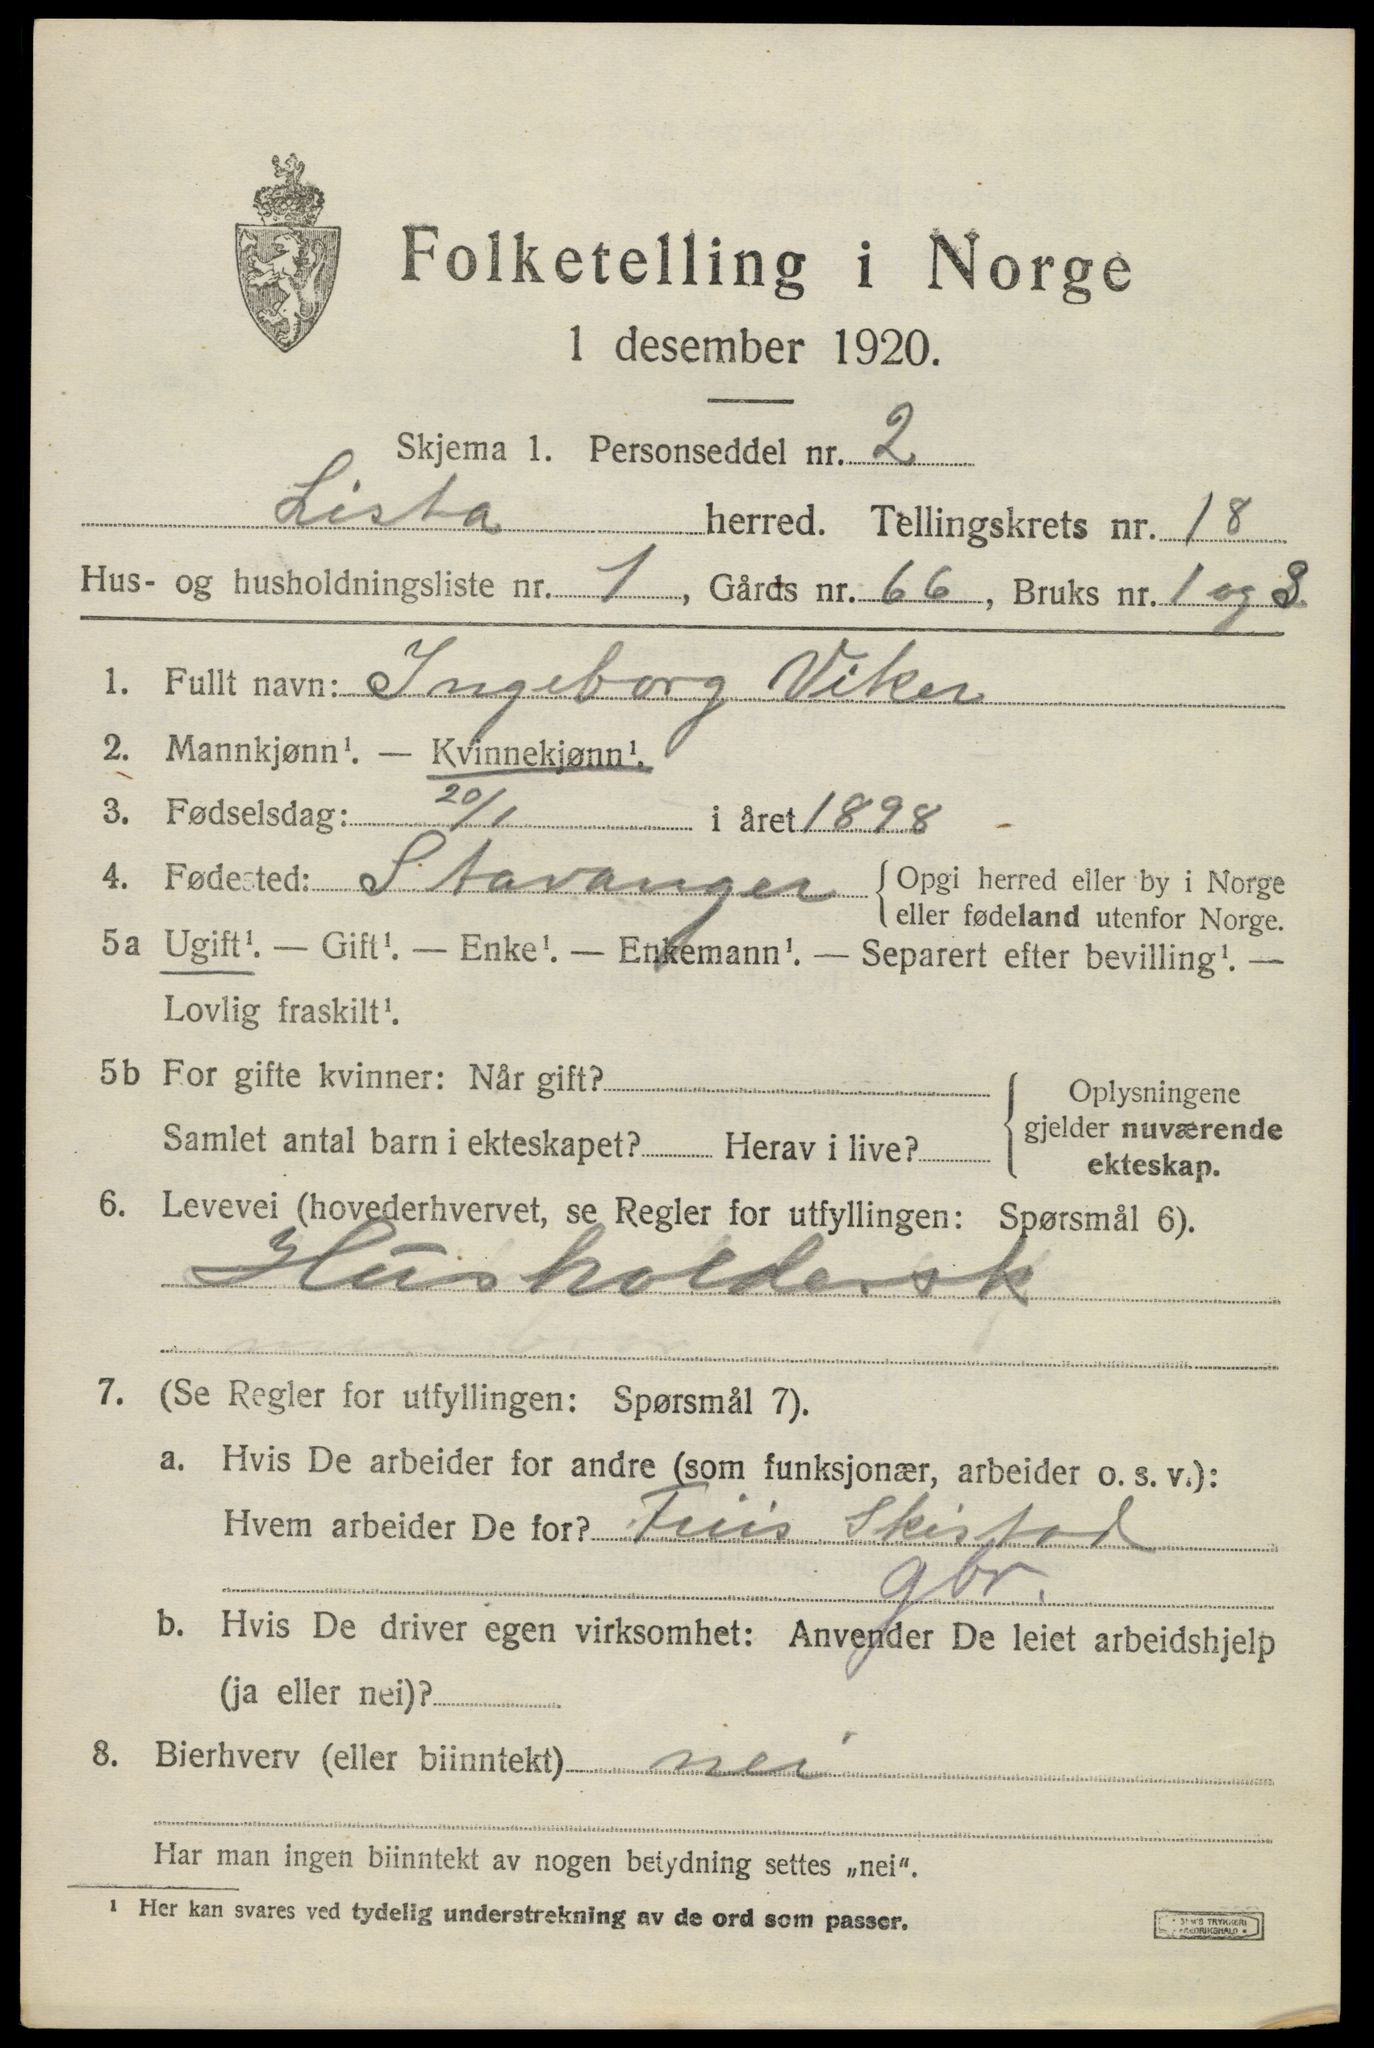 Folketelling i Norge
1 desember 1920.
Skjema 1. Personseddel nr. 2
Lista herred. Tellingskrets nr. 18
Hus- og husholdningsliste nr. 1, Gårds nr. 66, Bruks nr. 1 og 3
1. Fullt navn: Ingeborg Viker
2. Mannkjønn¹. — Kvinnekjønn¹.
3. Fødselsdag: 20/1 i året 1898
4. Fødested: Stavanger { Opgi herred eller by i Norge
eller fødeland utenfor Norge.
5a Ugift¹. — Gift¹. — Enke¹. — Enkemann¹. — Separert efter bevilling¹. —
Lovlig fraskilt¹.
5b For gifte kvinner: Når gift? { Oplysningene
gjelder nuværende
ekteskap.
Samlet antal barn i ekteskapet? Herav i live?
6. Levevei (hovederhvervet, se Regler for utfyllingen: Spørsmål 6).
Husholdersk
7. (Se Regler for utfyllingen: Spørsmål 7).
a. Hvis De arbeider for andre (som funksjonær, arbeider o. s. v.):
Hvem arbeider De for? Skistad
gbr.
b. Hvis De driver egen virksomhet: Anvender De leiet arbeidshjelp
(ja eller nei)?
8. Bierhverv (eller biinntekt) nei
Har man ingen biinntekt av nogen betydning settes „nei".
¹ Her kan svares ved tydelig understrekning av de ord som passer.
TRYKKERI